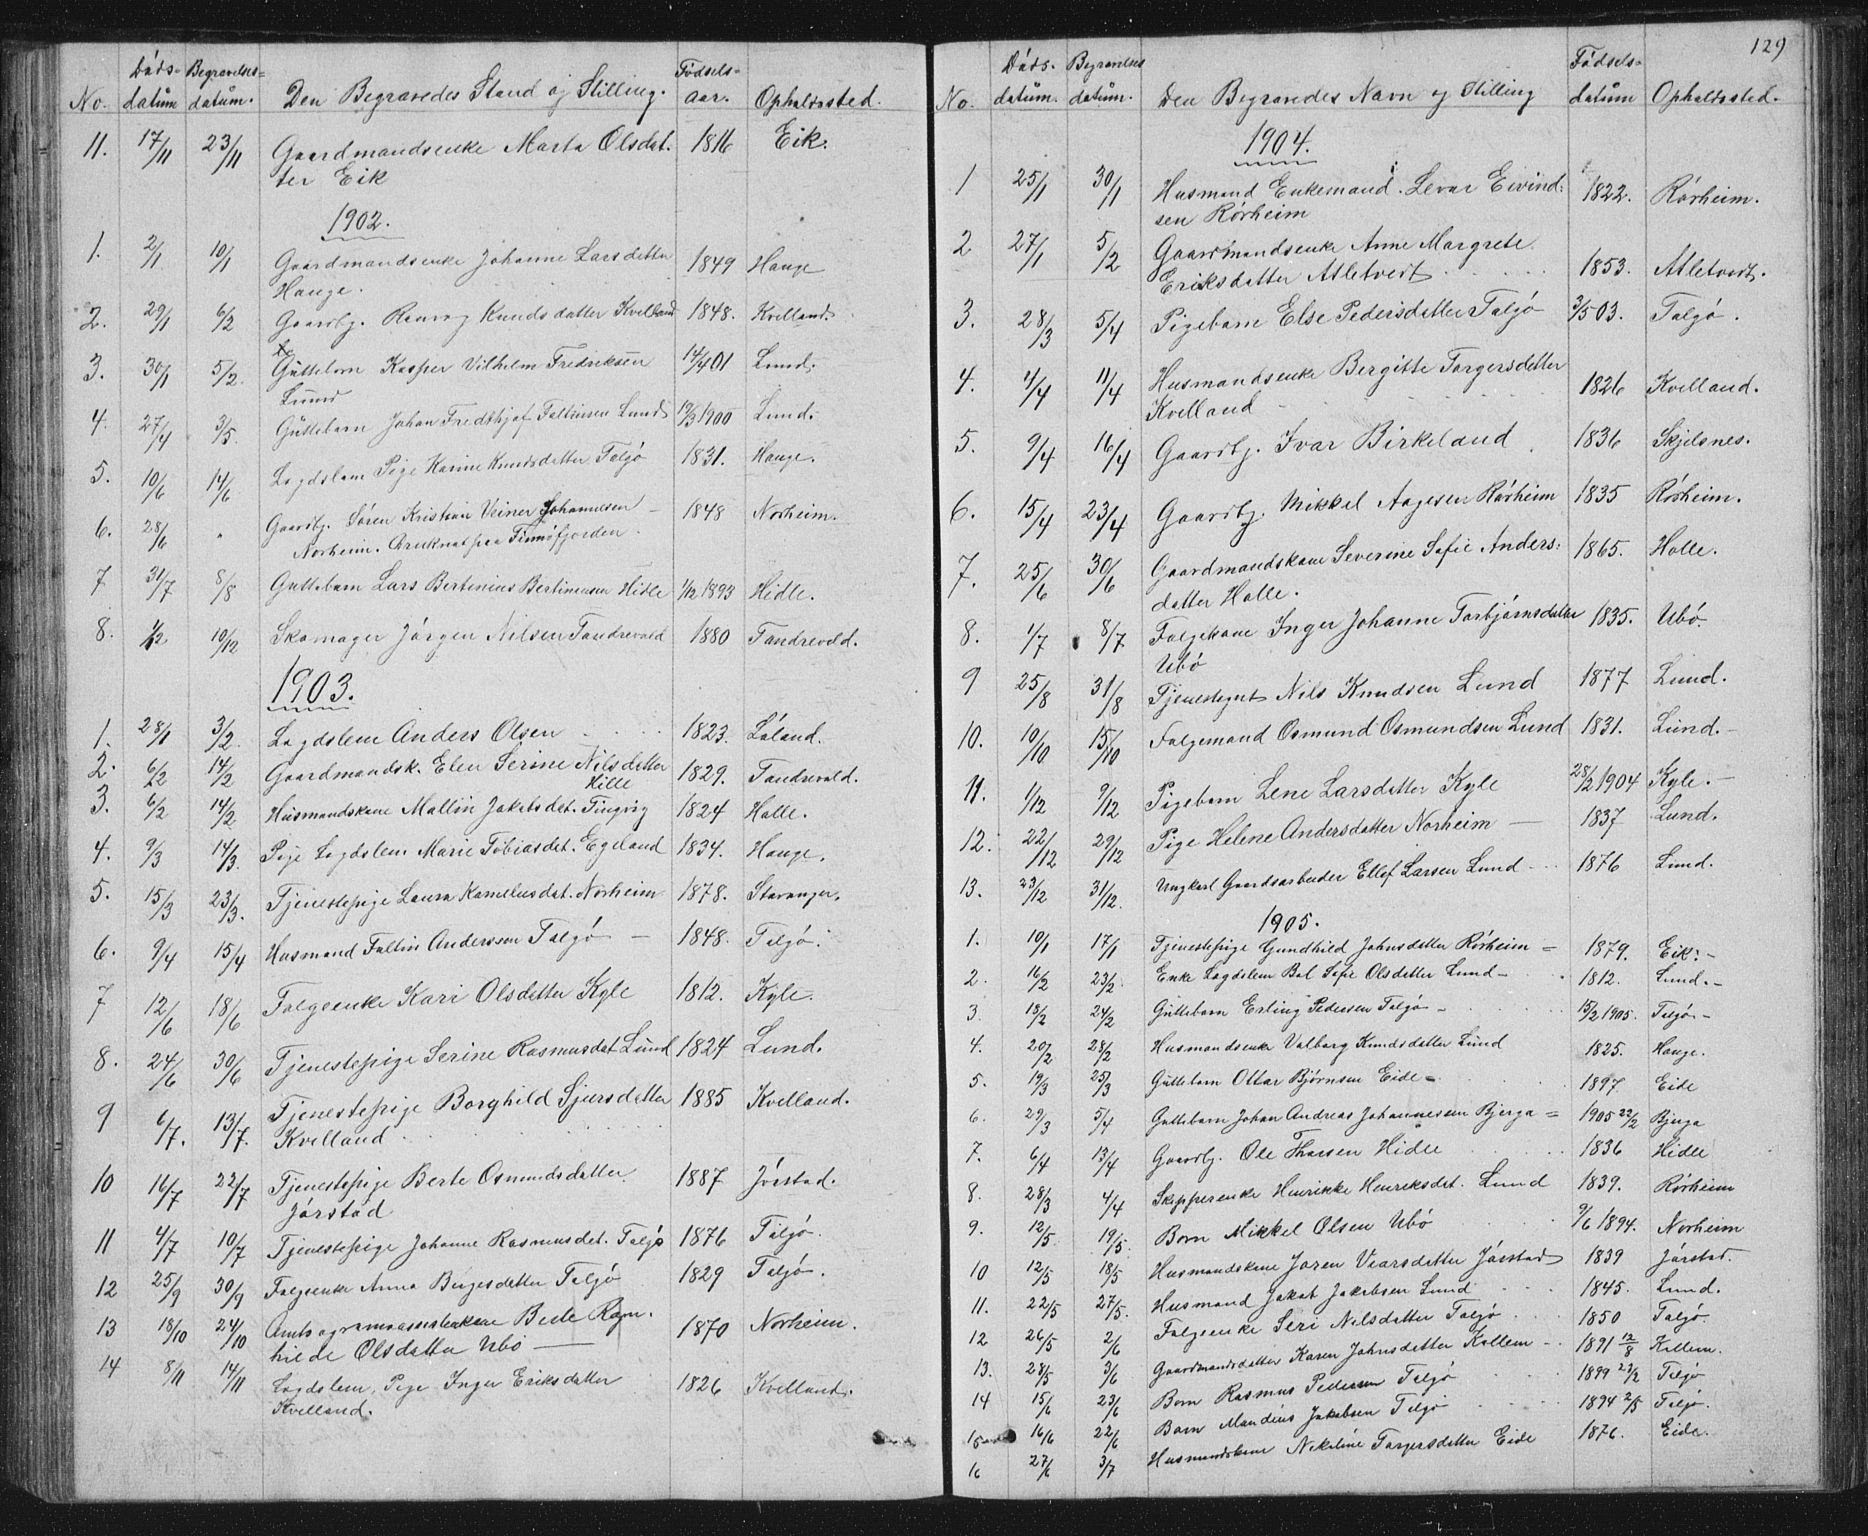 No. Døds-datum Begravelses=datum. Den Begravedes Stand og Stilling. Fødsels-aar. Opholdssted.
11. 17/11 23/11 Gaardmandsenke Marta Olsdat. 1816 Eik.
ter Eik
1902.
1. 2/1 10/1 Gaardmandsenke Johanne Larsdatter 1849 Hauge
Hauge.
2. 29/1 6/2 Gaardbg. Knudsdatter Kvelland 1848. Kvelland.
3. 30/1 5/2 Guttebarn Kasper Vilhelm Fredriksen 14/4 01 Lund.
Lund
4. 27/4 3/5. Guttebarn Johan Fredthjof Faltinsen Lund 19/3 1900 Lund.
5. 10/6 14/6 Lægdslem Pige Karine Knudsdatter Talgø 1831. Hauge.
6. 28/6 " Gaardbg. Søren Kristian Veiner Johannesen 1848 Norheim.
Norheim. Druknet paa Finnøfjorden
7 31/7 8/8 Guttebarn Lars Bertinius Bertinusen Hidle 1/12 1893 Hidle.
8. 1/12 10/12 Skomager Jørgen Nilsen Tandrevold 1880 Tandrevold.
1903.
1. 28/1 3/2. Lægdslem Anders Olsen 1823. Låland.
2. 6/2 14/2 Gaardmandsk. Elen Serine Nilsdatter 1829. Tandrevold.
Hille
3. 6/2 14/2 Husmandskone Mallin Jakobsdat. Tingvig 1824 Halle.
4. 9/3 14/3. Pige Lægdslem Marie Tobiasdat. Egeland 1834. Hauge.
5. 15/3 23/3. Tjenestepige Laura Kamelusdat. Norheim 1878. Stavanger.
6. 9/4 15/4 Husmand Faltin Anderssen Talgø 1848. Talgø.
7 12/6 18/6 Folgeenke Kari Olsdatter Kyle 1812. Kyle.
8. 24/6 30/6 Tjenestepige Serine Rasmusdat Lund 1824 Lund.
9 6/7. 13/7. Tjenestepige Borghild Sjursdatter 1885 Kvelland.
Kvelland
10 16/7 22/7 Tjenestepige Berte Osmundsdatter 1887 Jørstad.
Jørstad
11 4/7 10/7 Tjenestepige Johanne Rasmusdat. Talgø 1876 Talgø.
12 25/9 30/9 Folgeenke Anna Børgesdatter Talgø 1829 Talgø.
13 18/10 24/10 Berte Ragn. 1870 Norheim.
hilde Olsdatter Ubø
14 8/11 14/11 Lægdslem, Pige Inger Eriksdatter 1826 Kvelland.
Kvelland.
129
No. Døds-datum. Begravelses datum. Den Begravedes Navn og Stilling Fødsels=datum Opholdssted.
1904.
1 25/1 30/1 Husmand Enkemand. Levar Eivind= 1822. Rørheim.
sen Rørheim
2 27/1 5/2 Gaardmandsenke Anne Margrete
Eriksdatter Atletveit 1853. Atletveit.
3. 28/3 5/4 Pigebarn Else Pedersdatter Talgø 3/5 03. Talgø.
4. 4/4 11/4 Husmandsenke Bergitte Torgersdatter 1826 Kvelland.
Kvelland
5. 9/4 16/4 Gaardbg. Ivar Birkeland 1836 Skjelsnes.
6. 15/4 23/4 Gaardbg. Mikkel Aagesen Rørheim 1835 Rørheim.
7. 25/6 30/6 Gaardmandskone Severine Sofie Anders= 1865. Halle.
datter Halle.
8. 1/7 8/7 Folgekone Inger Johanne Torbjørnsdatter 1835. Ubø.
Ubø
9 25/8 31/8 Tjenestegut Nils Knudsen Lund 1877 Lund.
10. 10/10 15/10 Folgemand Osmund Osmundsen Lund 1831. Lund.
11. 1/12 9/12 Pigebarn Lene Larsdatter Kyle 28/2 1904 Kyle.
12. 22/12 29/12 Pige Helene Andersdatter Norheim 1837 Lund.
13. 23/12 31/12. Ungkarl Gaardsarbeider Ellef Larsen Lund 1876 Lund.
1905.
1. 10/1 17/1 Tjenestepige Gundhild Johnsdatter Rørheim 1879. Eik.
2. 16/2 23/2 Enke Lægdslem Bol Sofie Olsdatter Lund 1812. Lund.
3. 18/2 24/2 Guttebarn Erling Pedersen Talgø 15/2 1905. Talgø
4. 20/2 28/2 Husmandsenke Valborg Knudsdatter Lund 1825. Hauge.
5. 19/3 25/3 Guttebarn Ottar Bjørnsen Eide 1897 Eide
6. 29/3 5/4 Guttebarn Johan Andreas Johannesen Bjerga 1905 22/2 Bjerga
7. 6/4 13/4 Gaardbg. Ole Thorsen Hidle 1836 Hidle
8. 28/3 4/4 Skipperenke Henrikke Henriksdat. Lund 1839. Rørheim
9. 12/5 19/5. Barn Mikkel Olsen Ubø 9/6 1894. Norheim
10 12/5 18/5 Husmandskone Joren Viarsdatter Jørstad 1839 Jørstad.
11. 22/5 27/5. Husmand Jakob Jakobsen Lund 1845. Lund.
12 26/5 2/6 Folgeenke Seri Nilsdatter Talgø 1850 Talgø.
13. 28/5 3/6 Gaardmandsdatter Karen Johnsdatter Kallem 1891 12/8 Kallem.
14 15/6 23/6 Barn Rasmus Pedersen Talgø 1899 22/2 Talgø
15 16/6 22/6 Barn Mandius Jakobsen Talgø 1894 2/5 Talgø.
16 27/6 3/7 Husmandskone Nikoline Torgersdatter Eide 1876. Eide.